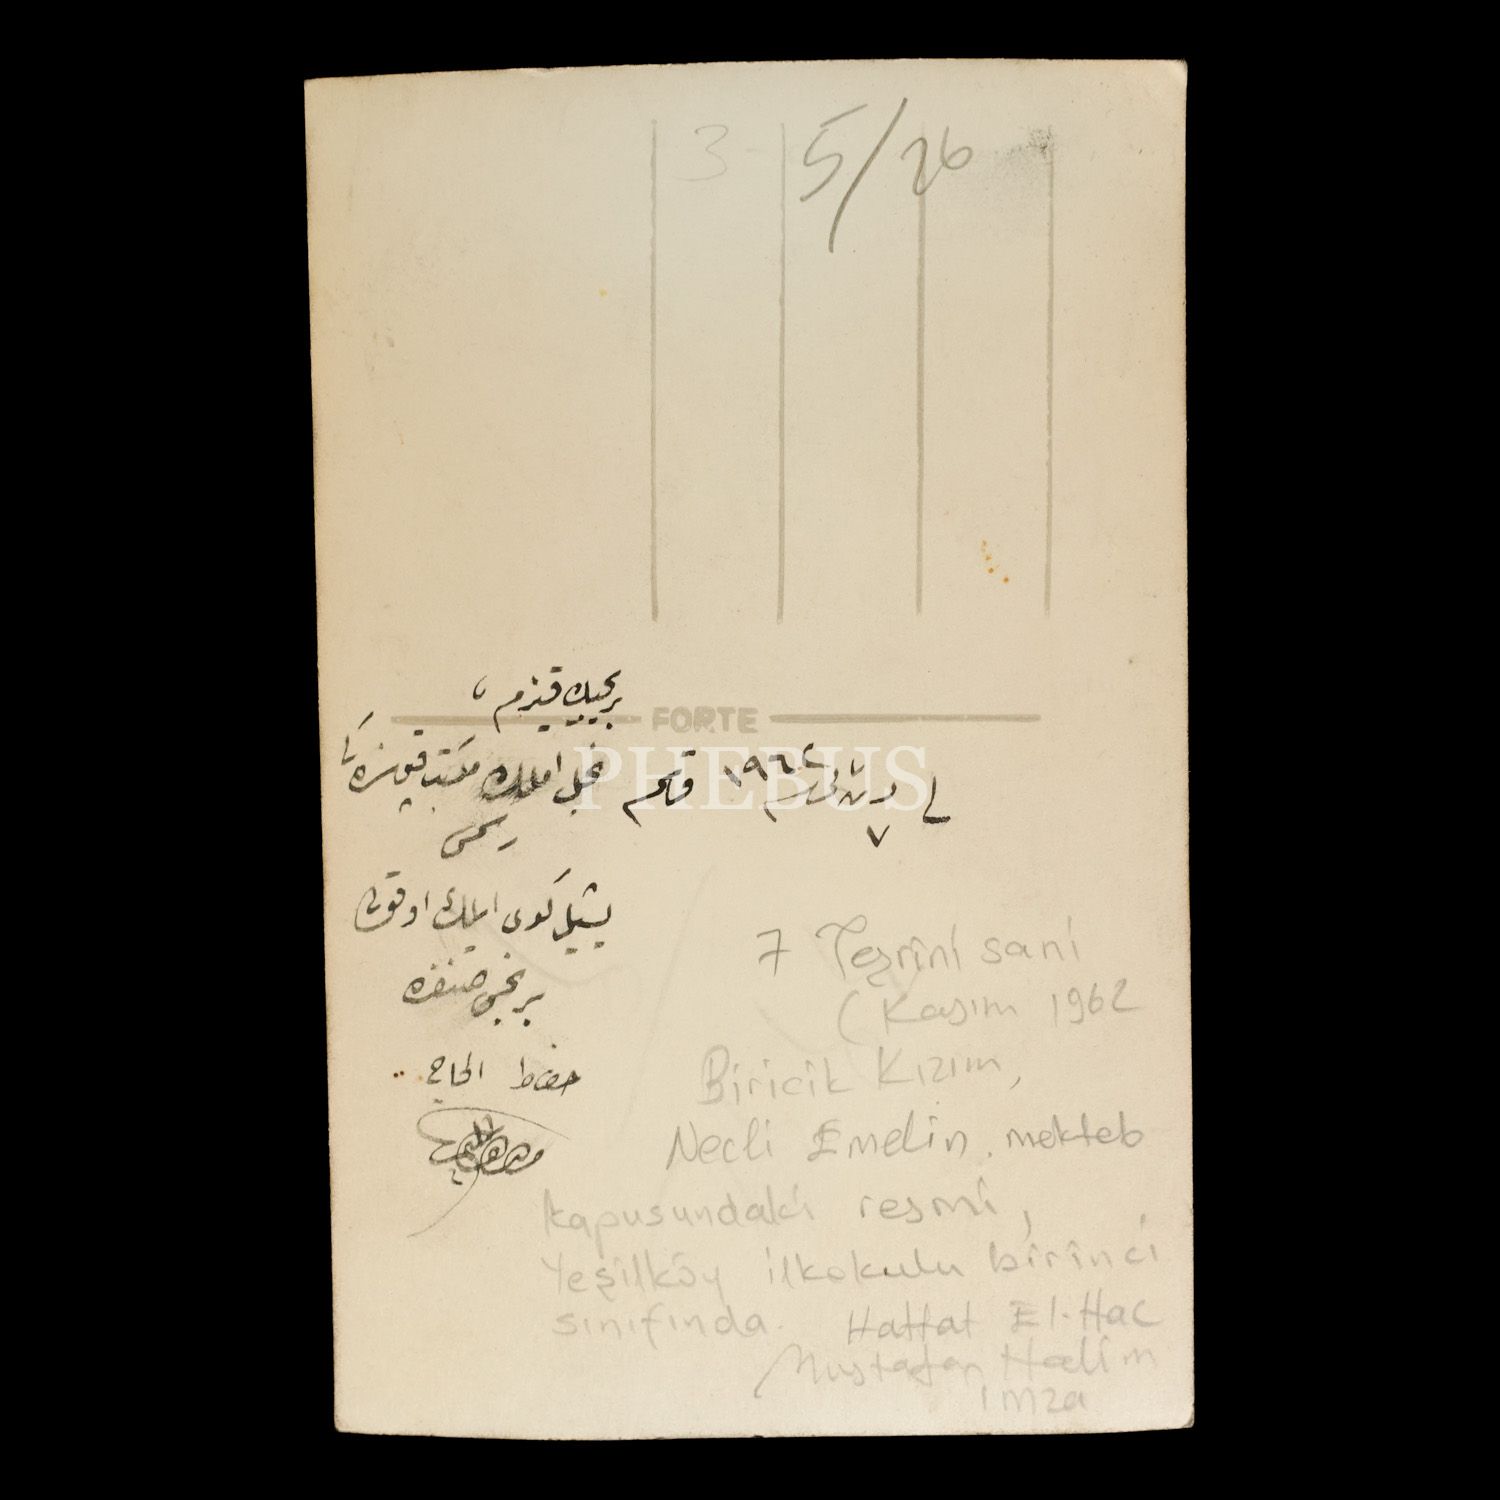 3- 5/26
FORTE
PHEBUS
بریجیك قیزم ،
نجل املك مكتب قپوسنده كی
رسمی
قاسم ١٩٦٢
٧
یشیل كوی ایلك اوقولی
برنجی صنفنده
خطاط الحاج
7 Teşrîni sani
( Kasım 1962
Biricik Kızım,
Necli Emelin. mekteb
kapusundaki resmî,
Yeşilköy ilkokulu birinci
sınıfında. Hattat El-Hac
Mustafa Halim
imza